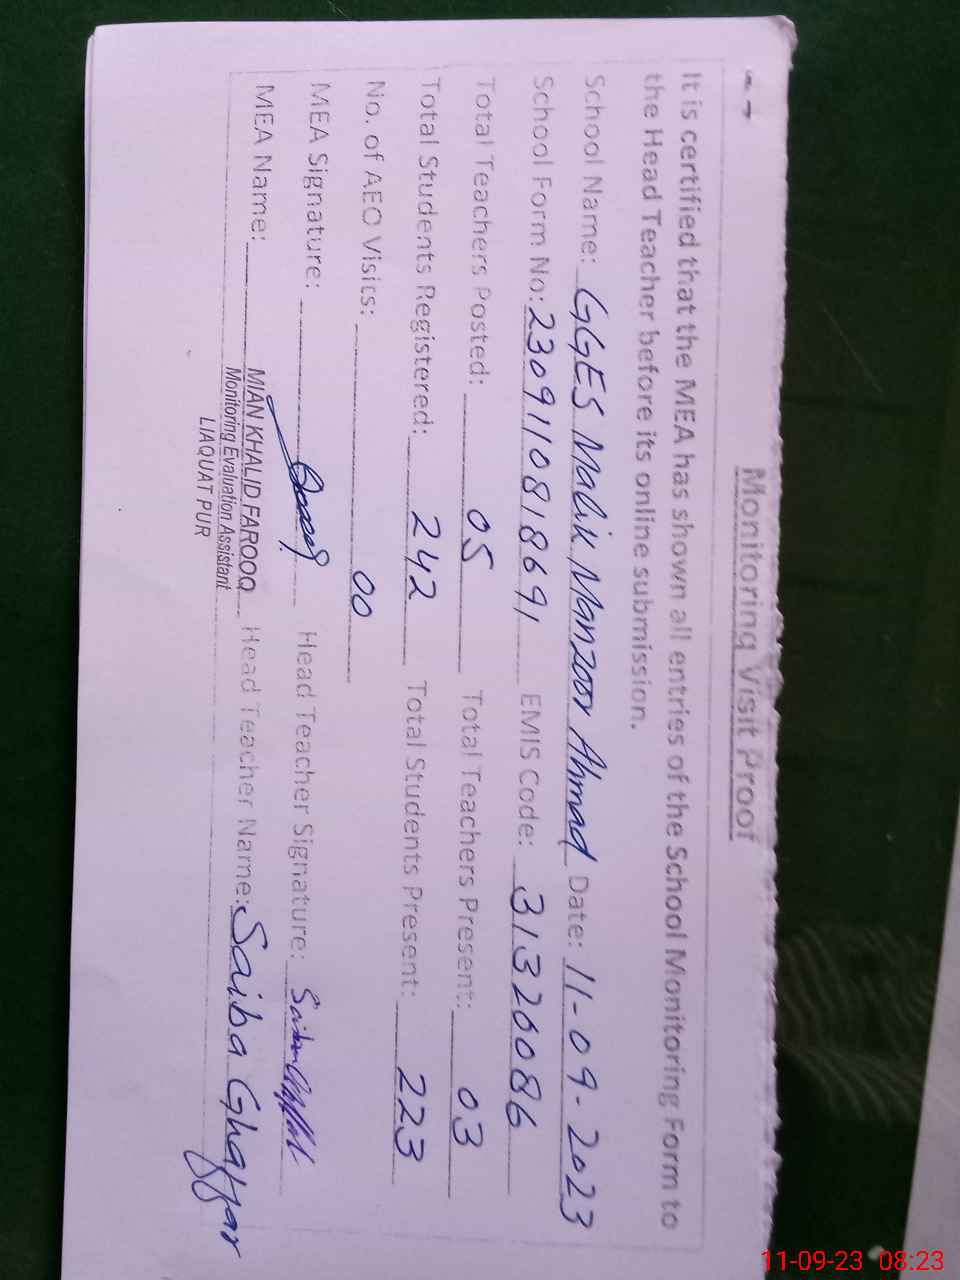 Monitoring Visit Proof
It is certified that the MEA has shown all entries of the School Monitoring Form to
the Head Teacher before its online submission.
School Name: GGES Malik Manzoor Ahmad Date: 11-09-2023
School Form No: 2309110818691 EMIS Code: 31320086
Total Teachers Posted: 05 Total Teachers Present: 03
Total Students Registered: 242 Total Students Present: 223
No. of AEO Visits: 00
MEA Signature: Head Teacher Signature:
MEA Name: MIAN KHALID FAROOQ Head Teacher Name: Saiba Ghaffar
Monitoring Evaluation Assistant
LIAQUAT PUR
11-09-23 08:23